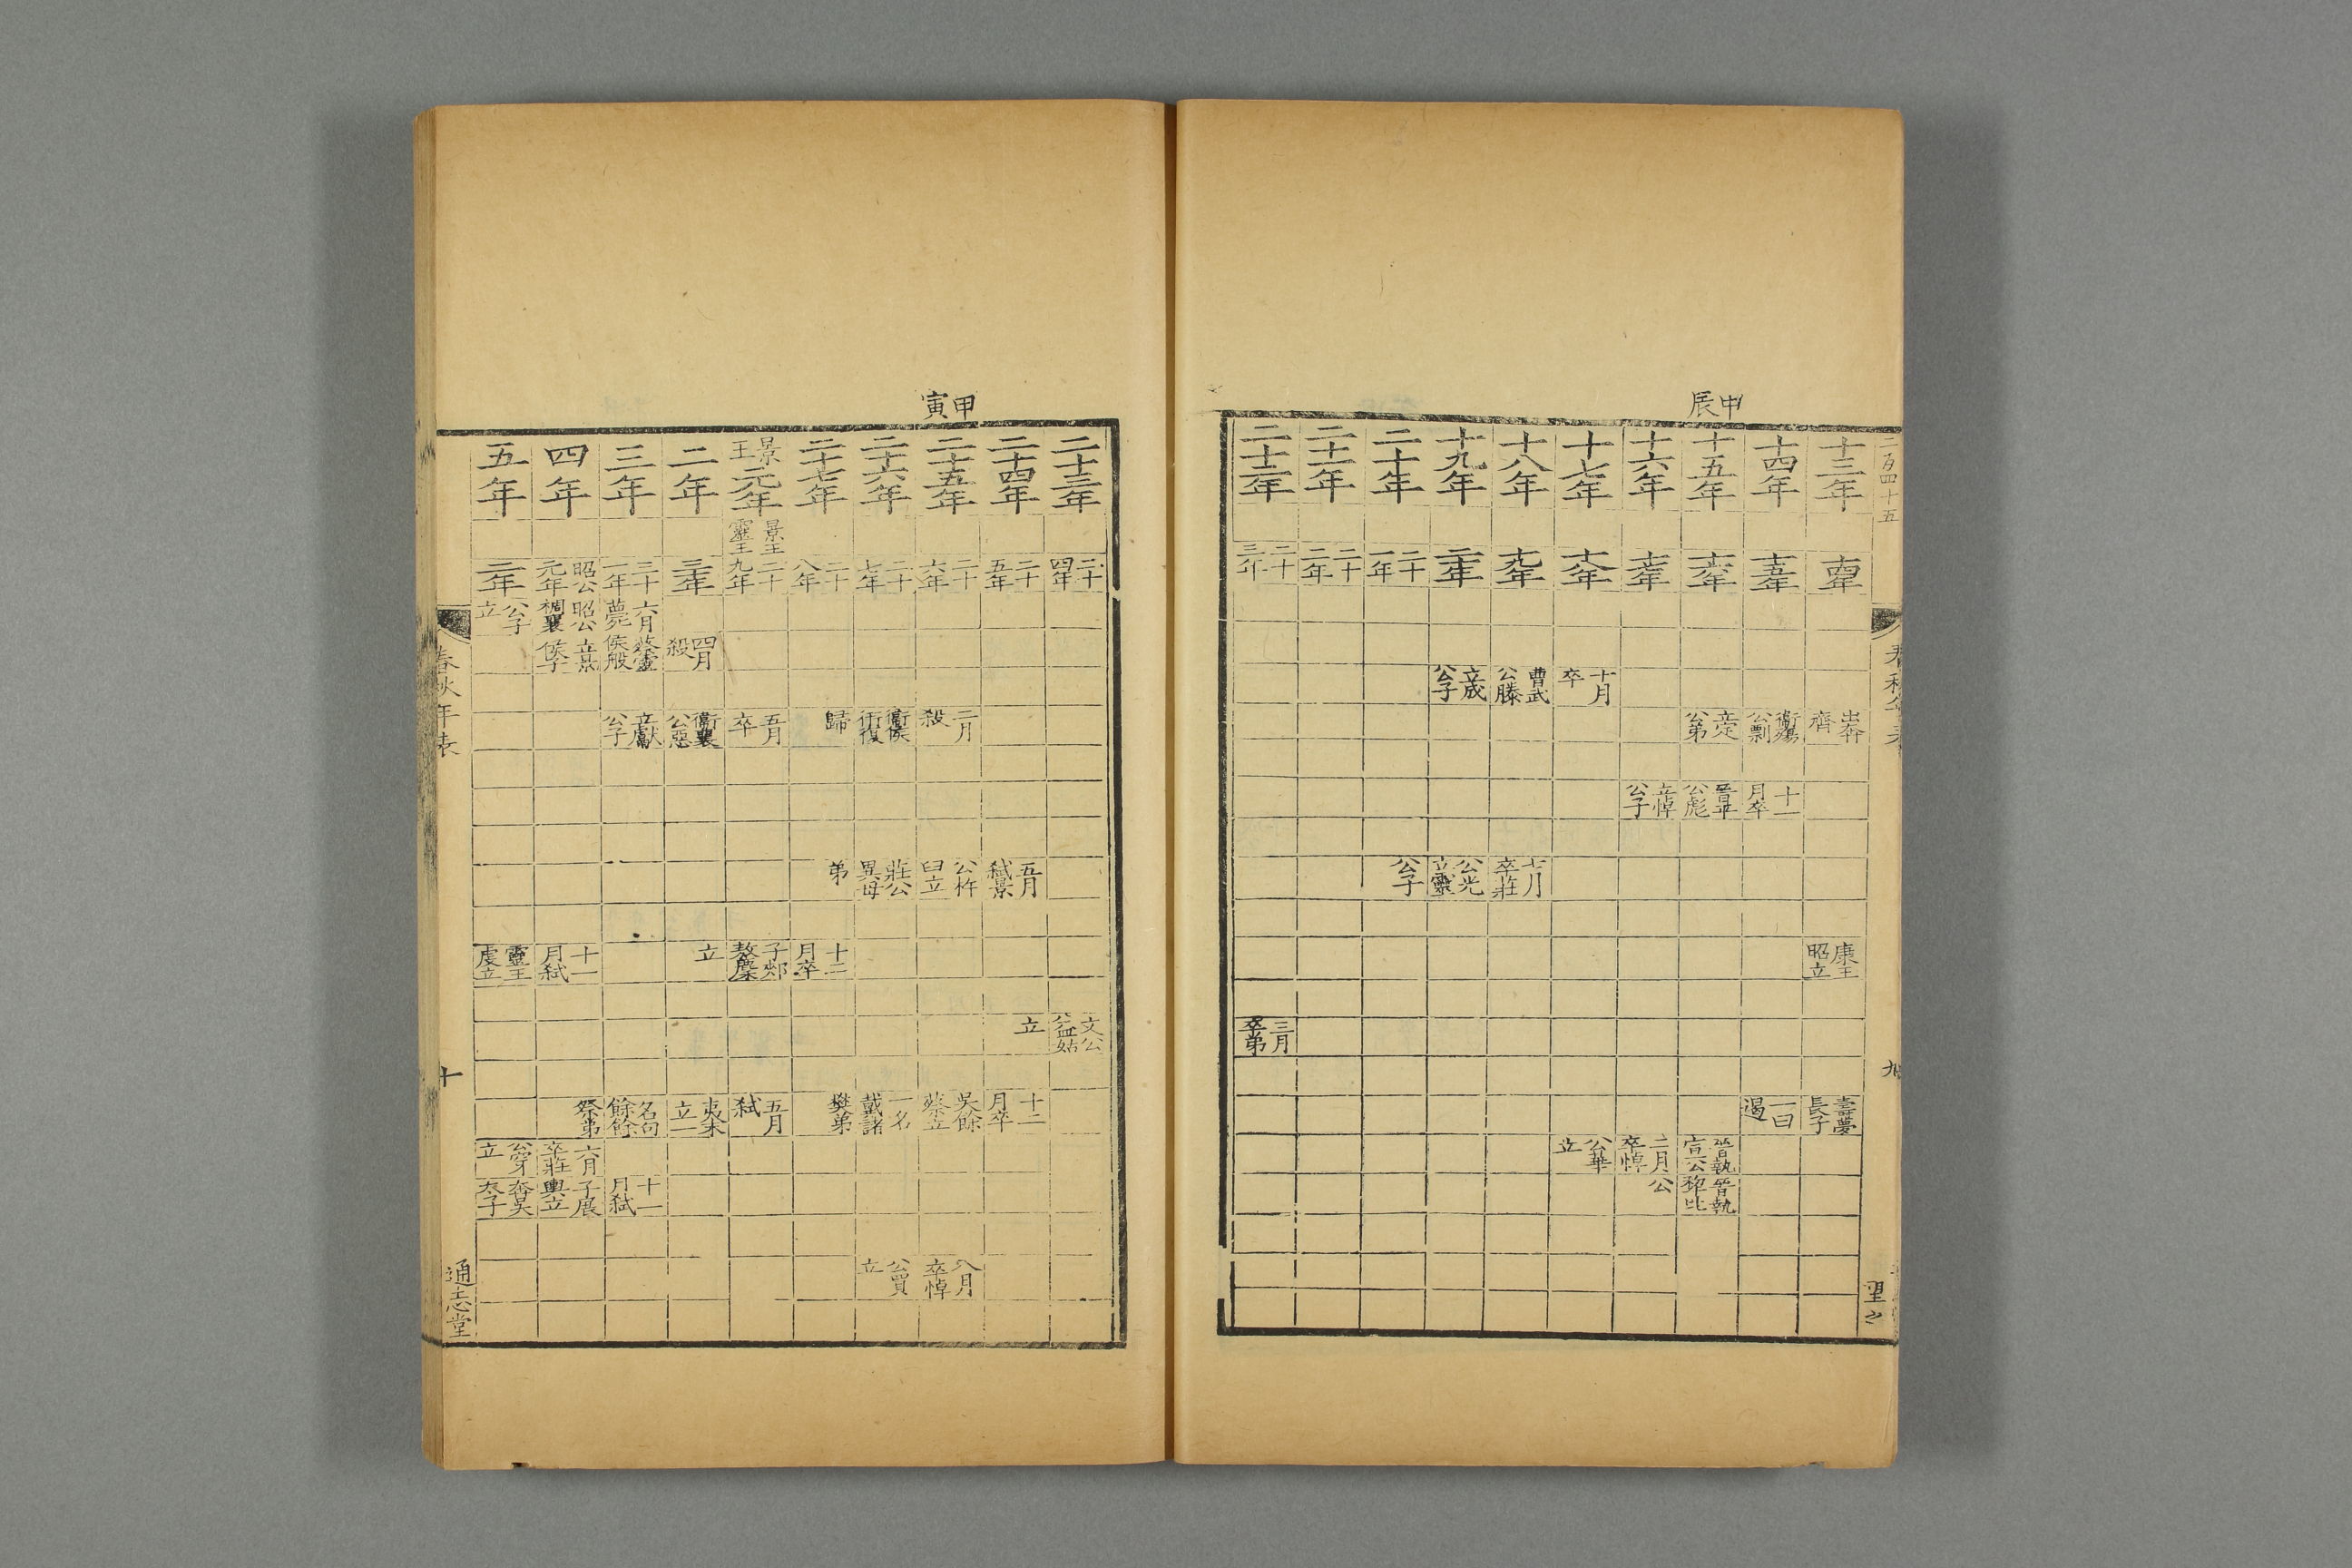 甲辰
二百四十五
春秋年表
九
十三年
十四年
十五年
十六年
十七年
十八年
十九年
二十年
二十一年
二十二年
十四年
十五年
十六年
十七年
十八年
十九年
二十年
二十一年
二十二年
二十三年
十月卒
曹武公滕
立成公子
出奔齊
衛殤公剽
立定公弟
十一月卒
晉平公彪
立悼公子
七月卒莊
公光立靈
公子
康王昭立
三月卒弟
壽夢長子
一曰遏
晉執宣公
二月卒悼
公華立
晉執犂比
公
甲寅
二十三年
二十四年
二十五年
二十六年
二十七年
景王元年
二年
三年
四年
五年
景王靈王
二十四年
二十五年
二十六年
二十七年
二十八年
二十九年
三十年
三十一年
昭公元年
二年
六月薨
昭公裯襄
公子立
四月殺
蔡靈侯般
立景侯子
二月殺
衛侯衎復
歸
五月卒
衛襄公惡
立獻公子
五月弑景
公杵臼立
莊公異母
弟
十二月卒
子郟敖麇
立
十一月弑
靈王虔立
文公益姑
立
十二月卒
吳餘蔡立
一名戴諸
樊弟
五月弑
夷末立一
名句餘餘
祭弟
六月卒莊
公穿立
十一月弑
子展輿立
奔吳去子
八月卒悼
公買立
春秋年表
十
通志堂